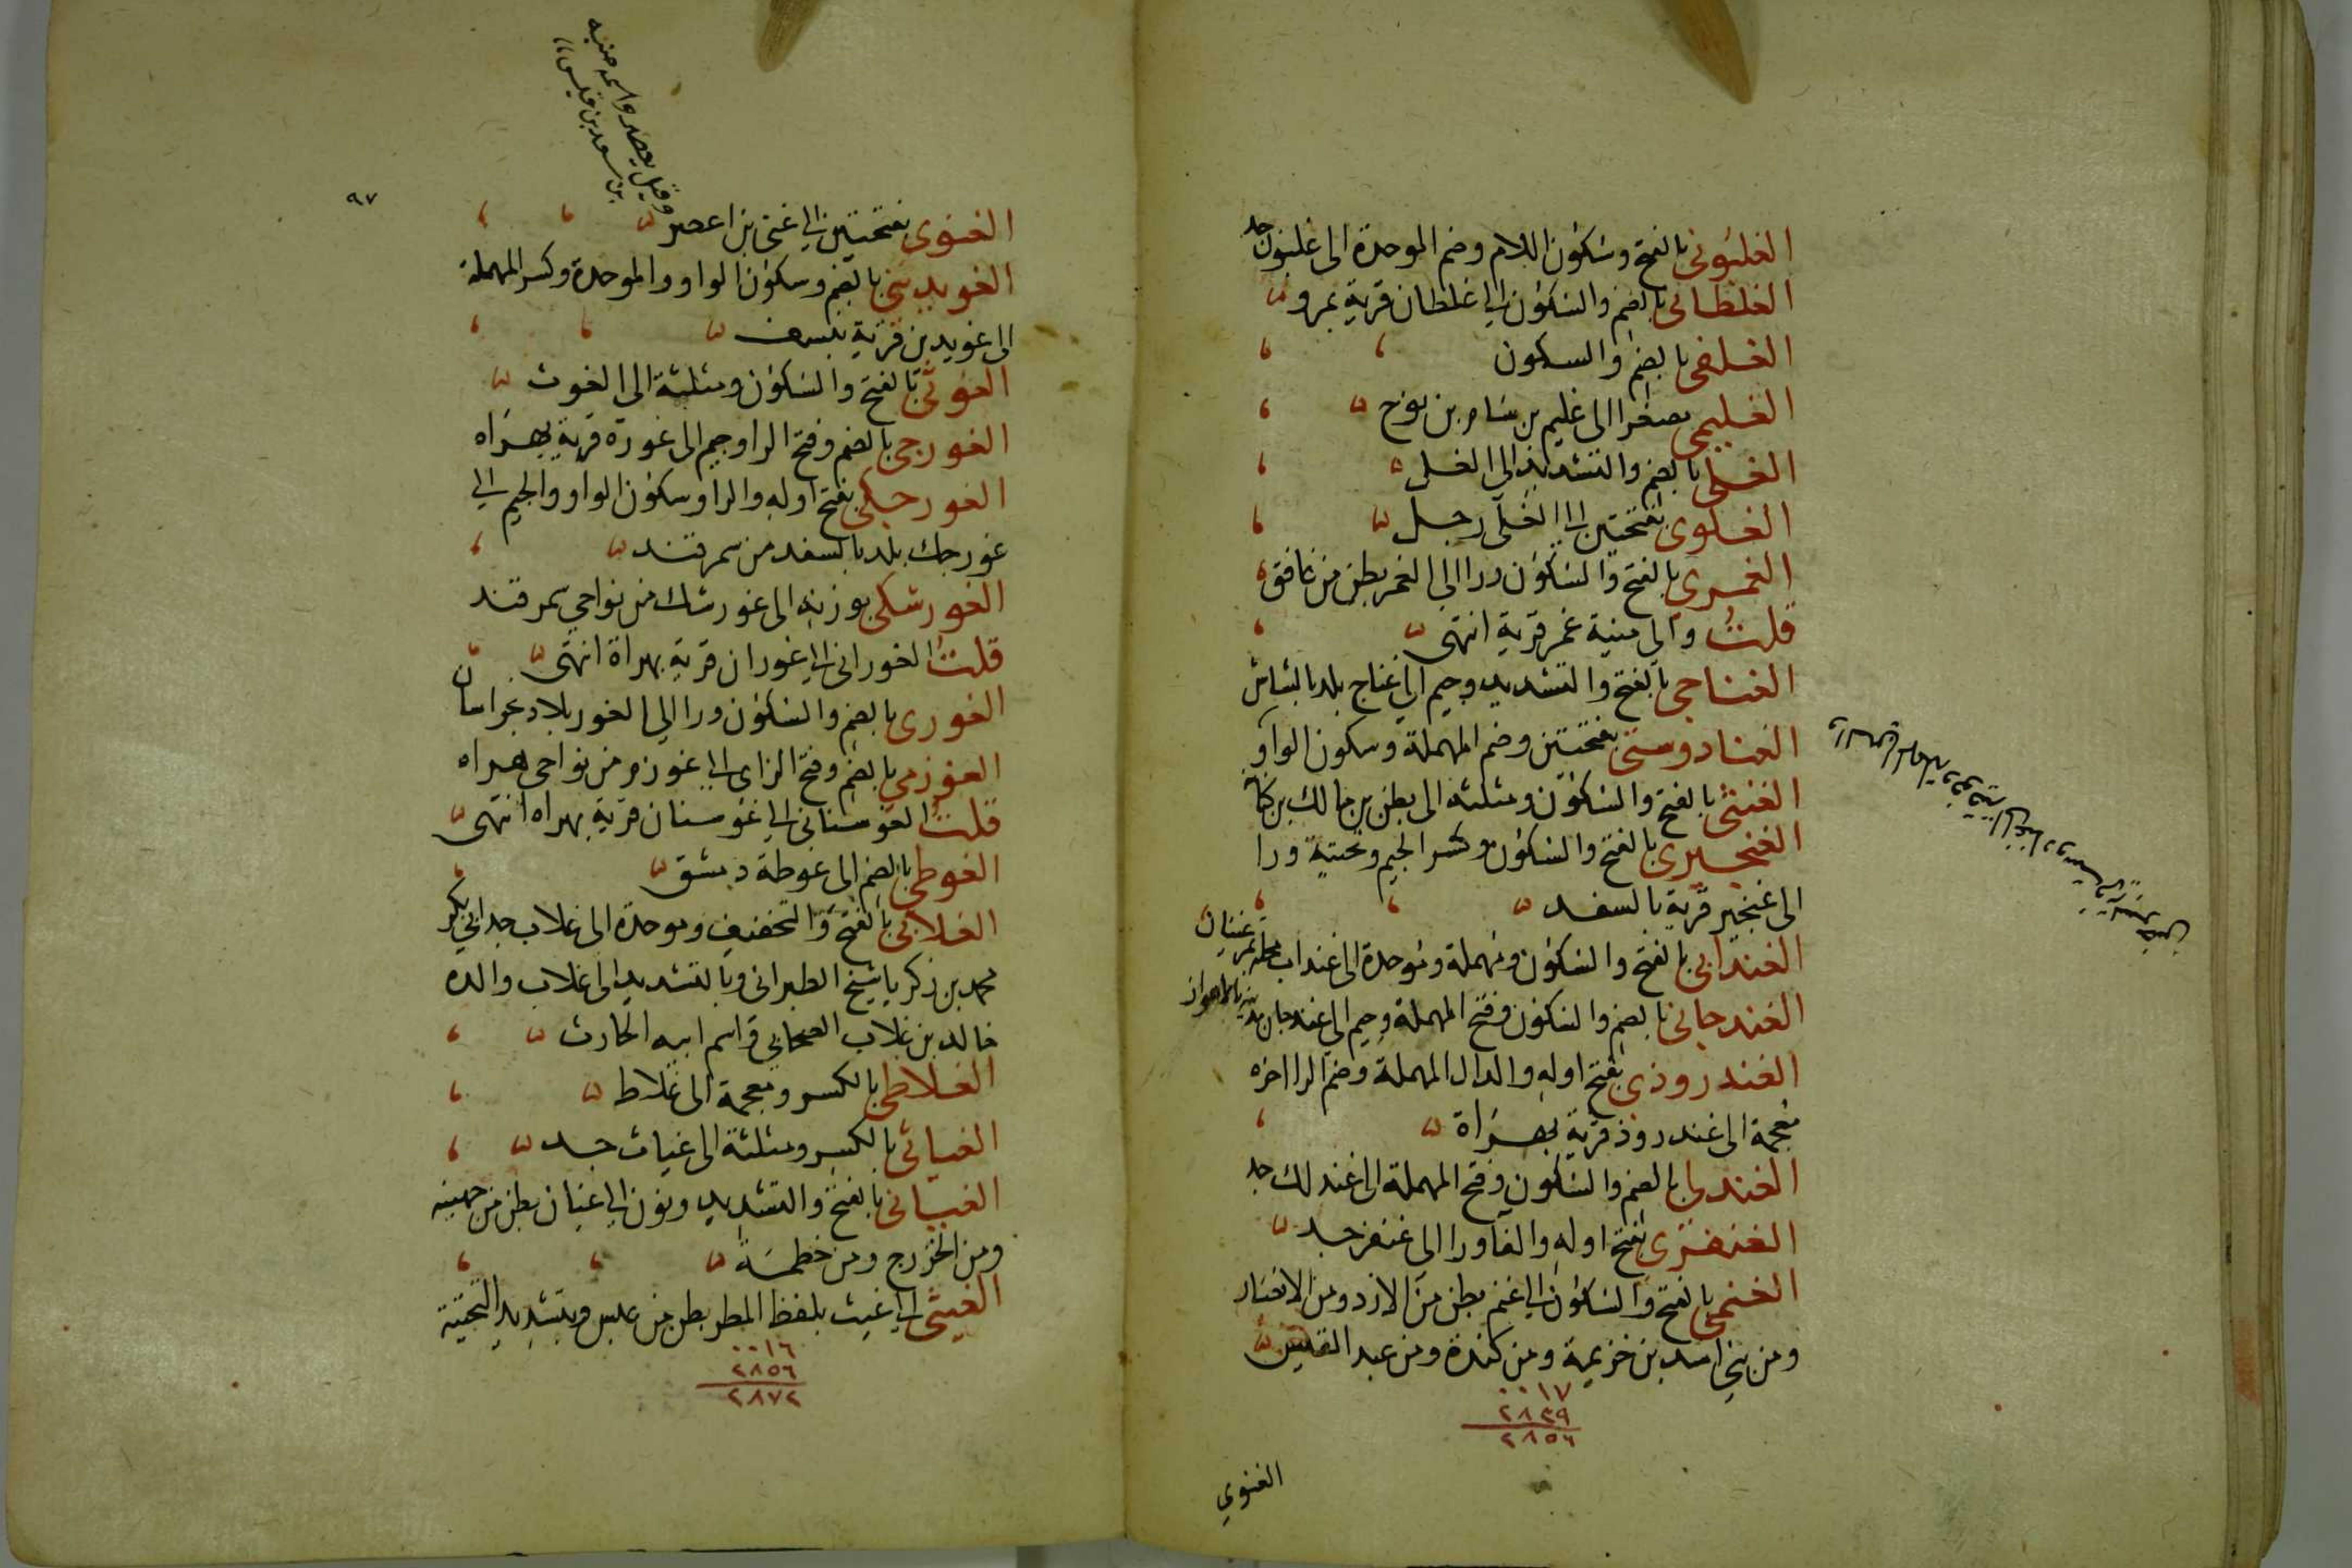 الغلبونى بالفتح وسكون اللام وضم الموحدة الى غلبون جد
الغلطانى بالضم والسكون الى غلطان قرية بمرو
الغلفى بالضم والسكون
الغليمى مصغرا الى غليم بن سام بن نوح
الغلى بالضم والتشديد الى الغل
الغلوى بفتحتين الى الغلى رجل
الغمرى بالفتح والسكون ورا الى الغمر بطن من غافق
قلت والى منية غمر قرية انتهى
الغناجى بالفتح والتشديد وجيم الى غناج بلد بالشاش
الغنادوستى بفتحتين وضم المهملة وسكون الواو
الغنثى بالفتح والسكون ومثلثة الى بطن من مالك بن كنانة
الغنجيرى بالفتح والسكون وكسر الجيم وتحتية ورا
الى غنجير قرية بالسغد
الغندابى بالفتح والسكون ومهملة وموحدة الى غنداب محلة بمرغينان
الغندجانى بالضم والسكون وفتح المهملة وجيم الى غندجان مدينة بالاهواز
الغندروذى بفتح اوله والدال المهملة وضم الرا اخره
معجمة الى غندروذ قرية بهراة
الغندلى بالضم والسكون وفتح المهملة الى غندلك جد
الغنفرى بفتح اوله والفا ورا الى غنفر جد
الغنمى بالفتح والسكون الى غنم بطن من الازد ومن الانصار
ومن بنى اسد بن خزيمة ومن كندة ومن عبد القيس
٠٠١٧
٢٨٣٩
٢٨٥٦
الغنوي
٩٧
وقيل يعصر واسمه منبه
بن سعد بن قيس
الغنوى بفتحتين الى غنى بن اعصر
الغوبدينى بالضم وسكون الواو والموحدة وكسر المهملة
الى غوبدين قرية بنسف
الغوثى بالفتح والسكون ومثلثة الى الغوث
الغورجى بالضم وفتح الرا وجيم الى غورة قرية بهراه
الغورجكى بفتح اوله والرا وسكون الواو والجيم الى
غورجك بلد بالسغد من سمرقند
الغورشكى بوزنه الى غورشك من نواحي سمرقند
قلت الغورانى الى غوران قرية بهراة انتهى
الغورى بالضم والسكون ورا الى الغور بلاد بخراسان
الغوزمي بالضم وفتح الزاى الى غوزم من نواحى هراه
قلت الغوسنانى الى غوسنان قرية بهراه انتهى
الغوطى بالضم الى غوطة دمشق
الغلابى بالفتح والتخفيف وموحدة الى غلاب جد ابي بكر
محمد بن زكريا شيخ الطبرانى وبالتشديد الى غلاب والده
خالد بن غلاب الصحابى واسم ابيه الحارث
الغلاظى بالكسر ومعجمة الى غلاظ
الغياثى بالكسر ومثلثة الى غياث جد
الغيانى بالفتح والتشديد ونون الى غيان بطن من جهينه
ومن الخزرج ومن خطمة
الغيثى الى غيث بلفظ المطر بطن من عبس وبتشديد التحتية
٠٠١٦
٢٨٥٦
٢٨٧٢